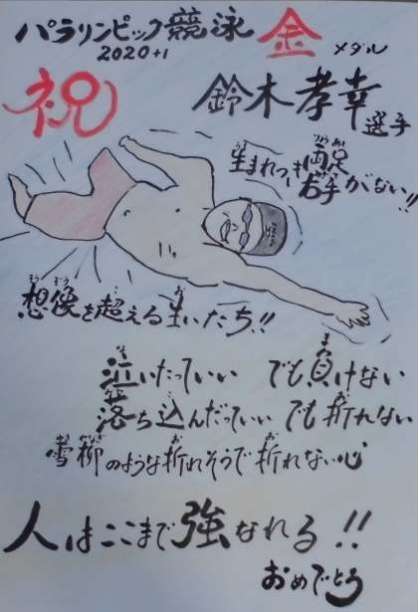 パラリンピック競泳 金 メダル
2020+1
祝 鈴木孝幸選手
生まれつき
右手がない!!
想像を超える生いたち!!
泣いたっていい でも負けない
落ち込んだっていい でも折れない
雪柳のような折れそうで折れない心
人はここまで強なれる!!
おめでとう